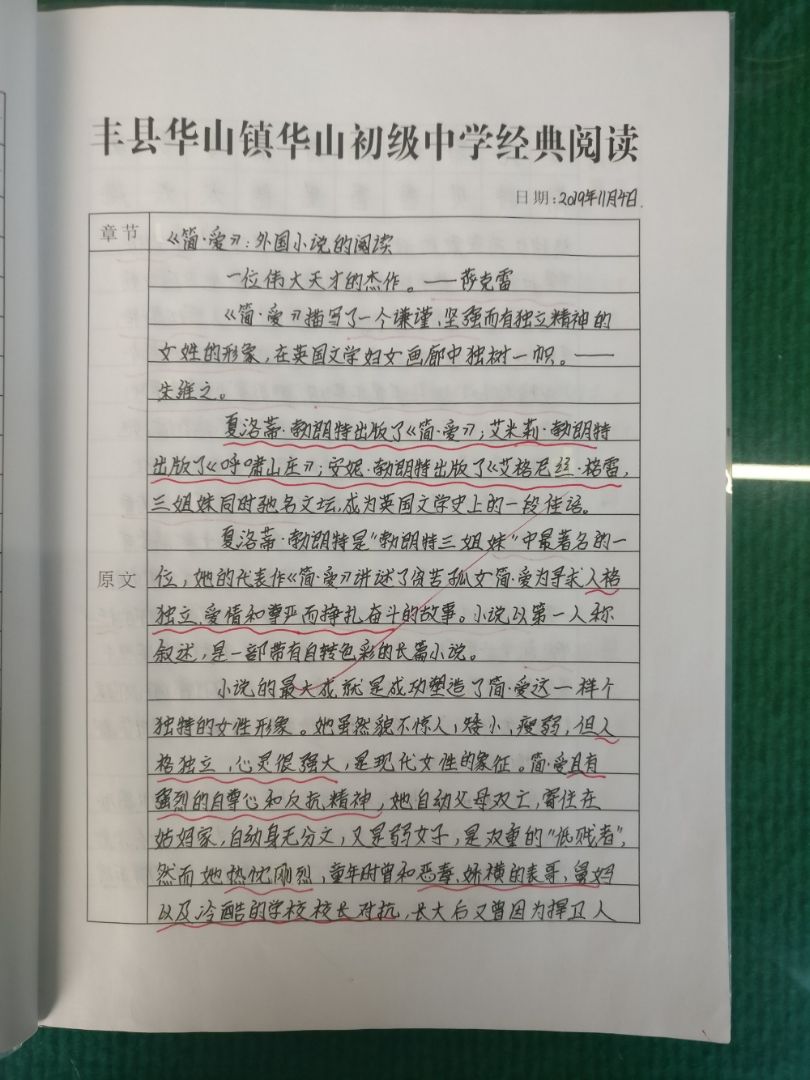 丰县华山镇华山初级中学经典阅读
日期:2019年11月4日.
章节
《简·爱》:外国小说的阅读
一位伟大天才的杰作。——萨克雷
《简·爱》描写了一个谦谨、坚强而有独立精神的
女姓的形象,在英国文学妇女画廊中独树一帜。——
朱维之。
夏洛蒂·勃朗特出版了《简·爱》;艾米莉·勃朗特
出版了《呼啸山庄》;安妮·勃朗特出版了《艾格尼丝·格雷,
三姐妹同时驰名文坛,成为英国文学史上的一段佳话。
夏洛蒂·勃朗特是"勃朗特三姐妹"中最著名的一
原文
位,她的代表作《简·爱》讲述了贫苦孤女简·爱为寻求人格
独立、爱情和尊严而挣扎奋斗的故事。小说以第一人称
叙述,是一部带有自转色彩的长篇小说。
小说的最大成就是成功塑造了简·爱这一样个
独特的女性形象。她虽然貌不惊人,矮小,瘦弱,但人
格独立,心灵很强大,是现代女性的象征。简·爱具有
强烈的自尊心和反抗精神,她自动父母双亡,寄住在
姑妈家,自动身无分文,又是弱女子,是双重的"低贱者",
然而她热忱刚烈,童年时曾和恶毒、娇横的表哥,舅妈
以及冷酷的学校校长对抗,长大后又曾因为捍卫人